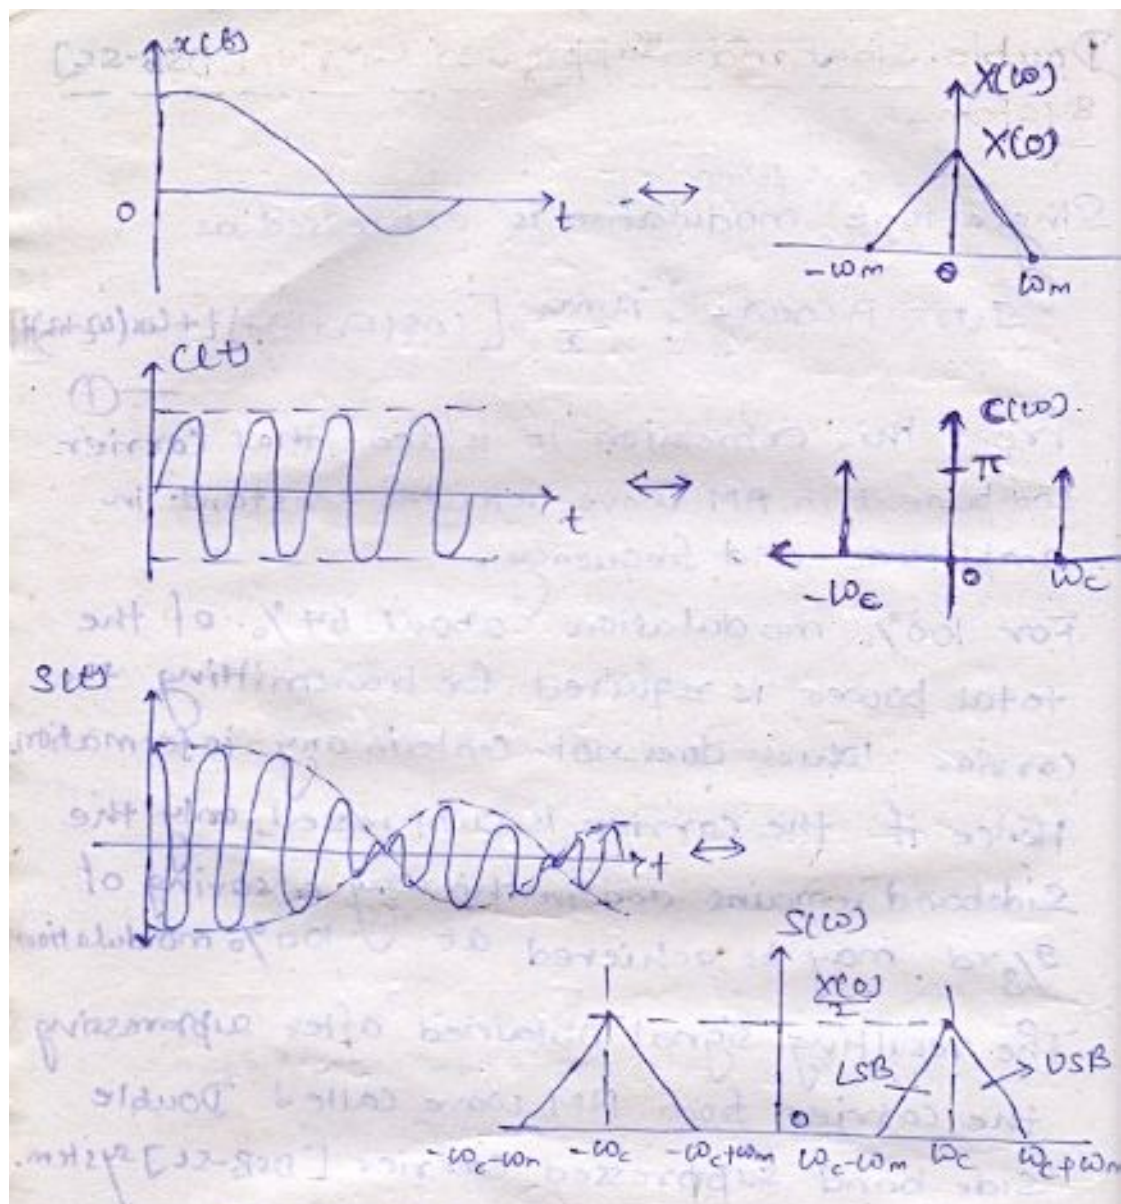 x(t)
X(ω)
X(0)
0 t ↔
-ωm 0 ωm
C(t)
C(ω)
π
t ↔
-ωc 0 ωc
S(t)
t ↔
S(ω)
X(0)/2
LSB USB
0
-ωc-ωm -ωc -ωc+ωm ωc-ωm ωc ωc+ωm